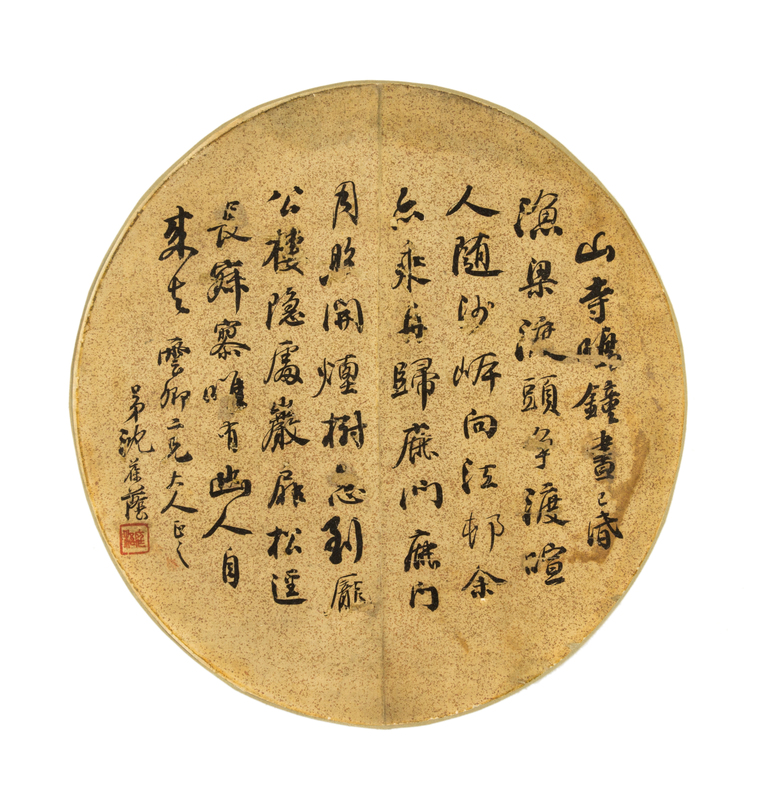 山寺鳴鐘晝已昏
漁梁渡頭爭渡喧
人隨沙岍向江邨余
亦乘舟歸鹿門鹿門
月照開煙樹忽到龐
公棲隱處巖扉松逕
長寂寥唯有幽人自
來去 雲卿二兄大人正之
弟沈蔭